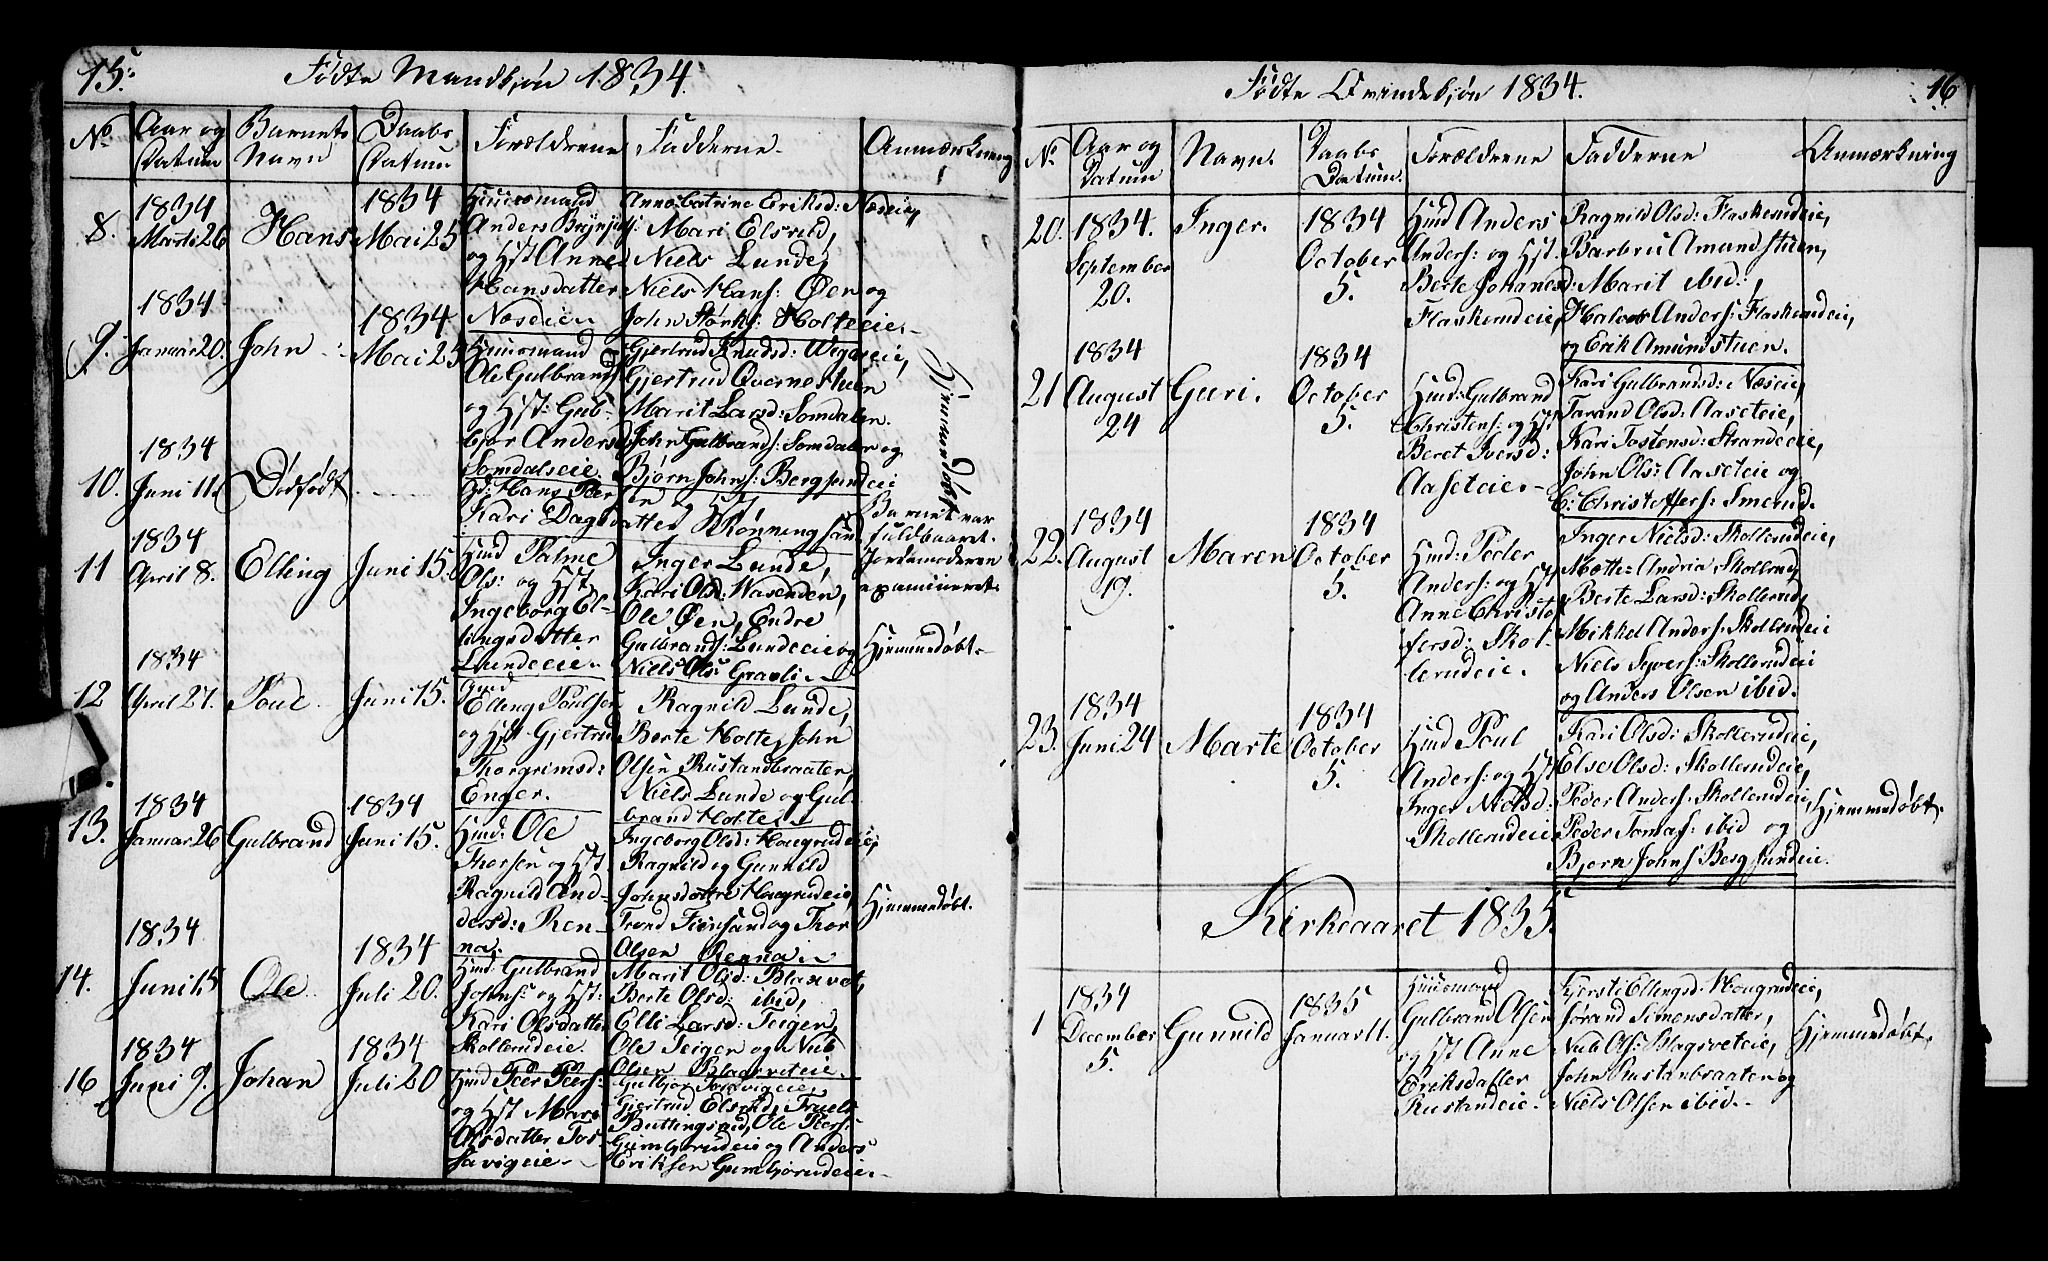 15.
Fødte Mandkjøn 1834.
No
Aar og Datum
Barnets Navn
Daabs Datum
Forældrene
Fadderne
Anmærkning
8.
1834 Marts 26
Hans
1834 Mai 25
Huusmand
Anders Brynjulfs:
og Hst Anne
Hansdatter
Næseie
Anne Catrine Eriksd: Næseie,
Mari Elsrud,
Niels Lunde,
Niels Hans: Øen og
John Størks: Holteeie.
9.
1834 Januar 20.
John
1834 Mai 25
Huusmand
Ole Gulbrands
og Hst: Gub-
bjør Andersd
Somdalseie
Gjertrud Knudsd: Wigeseie,
Gjertrud Øvernestuen
Marit Larsd: Somdalen.
John Gulbrands: Somdalen og
Bjørn Johns: Bergsundeie
Hjemmedøbt
10.
1834 Juni 11te
Dødfødt
Gd: Hans Peersen
Kari Dagsdatter
Barnet var
fuldbaaret.
Jordemoderen
examineret.
11
1834 April 8.
Elling
Juni 15.
Hmd Palme
Ols: og Hst
Ingeborg El-
lingsdatter
Lundeeie.
Inger Lunde,
Kari Olsd: Wasenden,
Ole Øen, Endre
Gulbrands: Lundeeie og
Niels Ols: Gravli.
Hjemmedøbt.
12
1834 April 27.
Poul
Juni 15.
Elling Poulsen
og Hst Gjertrud
Thorgrimsd:
Enger.
Ragnild Lunde,
Berte Holte, John
Olsen Rustandbraaten,
Niels Lunde og Gul-
brand Holte.
13.
1834 Januar 26
Gulbrand
1834 Juni 15.
Hmd: Ole
Thorsen og Hst
Ragnild And-
dersd: Ren-
na.
Ingeborg Olsd: Hougrudeie,
Ragnild og Gunnild
Johnsdøttre Hougrudeie
Trond Finsand og Thor
Olsen Renna.
Hjemmedøbt.
14.
1834 Juni 15
Ole
1834 Juli 20.
Hmd: Gulbrand
Johns: og Hst:
Kari Olsdatter
Skollerudeie.
Marit Olsd:
Berte Olsd: ibid,
Elli Larsd: Teigen,
Ole Teigen og Nub
Olsen
16
1834 Juni 9.
Johan
1834 Juli 20
Hmd Peer Peers:
og Hst Mari
Olsdatter Tos-
savigeie.
Gulbjør
Gjertrud Elsrud, Truels
Buttingsrud, Ole Peers:
Gumhjørudeie og Anders
Eriksen Gumhjørudeie.
16
Fødte Qvindekjøn 1834.
No
Aar og Datum
Navn.
Daabs Datum.
Forældrene
Fadderne
Anmærkning
20.
1834. September 20.
Inger.
1834 October 5.
Hmd Anders
Anders: og Hst.
Berte Johanesd:
Flaskerudeie,
Ragnild Olsd: Flaskerudeie,
Barbru Amundstuen,
Marit ibid:,
Halvor Anders: Flaskerudeie,
og Erik Amundstuen.
21
1834 August 24
Guri.
1834 October 5.
Hmd: Gulbrand
Christens: og Hst
Beret Iversd:
Aaseteie.
Kari Gulbrandsd: Næseie,
Tarand Olsd: Aaseteie,
Kari Tostensd: Strandeeie,
John Ols: Aaseteie og
C: Christoffers: Smerud.
22.
1834 August 19.
Maren
1834 October 5.
Hmd: Peder
Anders: og Hst
Anne Christo-
fersd: Skol-
lerudeie.
Inger Nielsd: Skollerudeie,
Mætte Andrea Skollerud,
Berte Larsd: Skollerud,
Mikkel Anders: Skollerudeie
Niels Syvers: Skollerudeie
og Anders Olsen ibid.
23.
1834 Juni 24
Marte
1834 October 5.
Hmd Poul
Anders: og Hst
Inger Nielsd:
Skollerudeie
Kari Olsd: Skollerudeie,
Else Olsd: Skollerudeie,
Peder Anders: Skollerudeie,
Peder Tomas: ibid og
Bjørn Johns Bergsundeie.
Hjemmedøbt.
Kirkeaaret 1835.
1
1834 December 5.
Gunnild
1835 Januar 11.
Huusmand
Gulbrand Olsen
og Hst Anne
Eriksdatter
Rustandeie.
Kjersti Ellingsd: Hougrudeie,
Jørand Simensdatter,
Nub Ols: Blagsveteie,
John Rustanbraaten og
Niels Olsen ibid.
Hjemmedøbt.